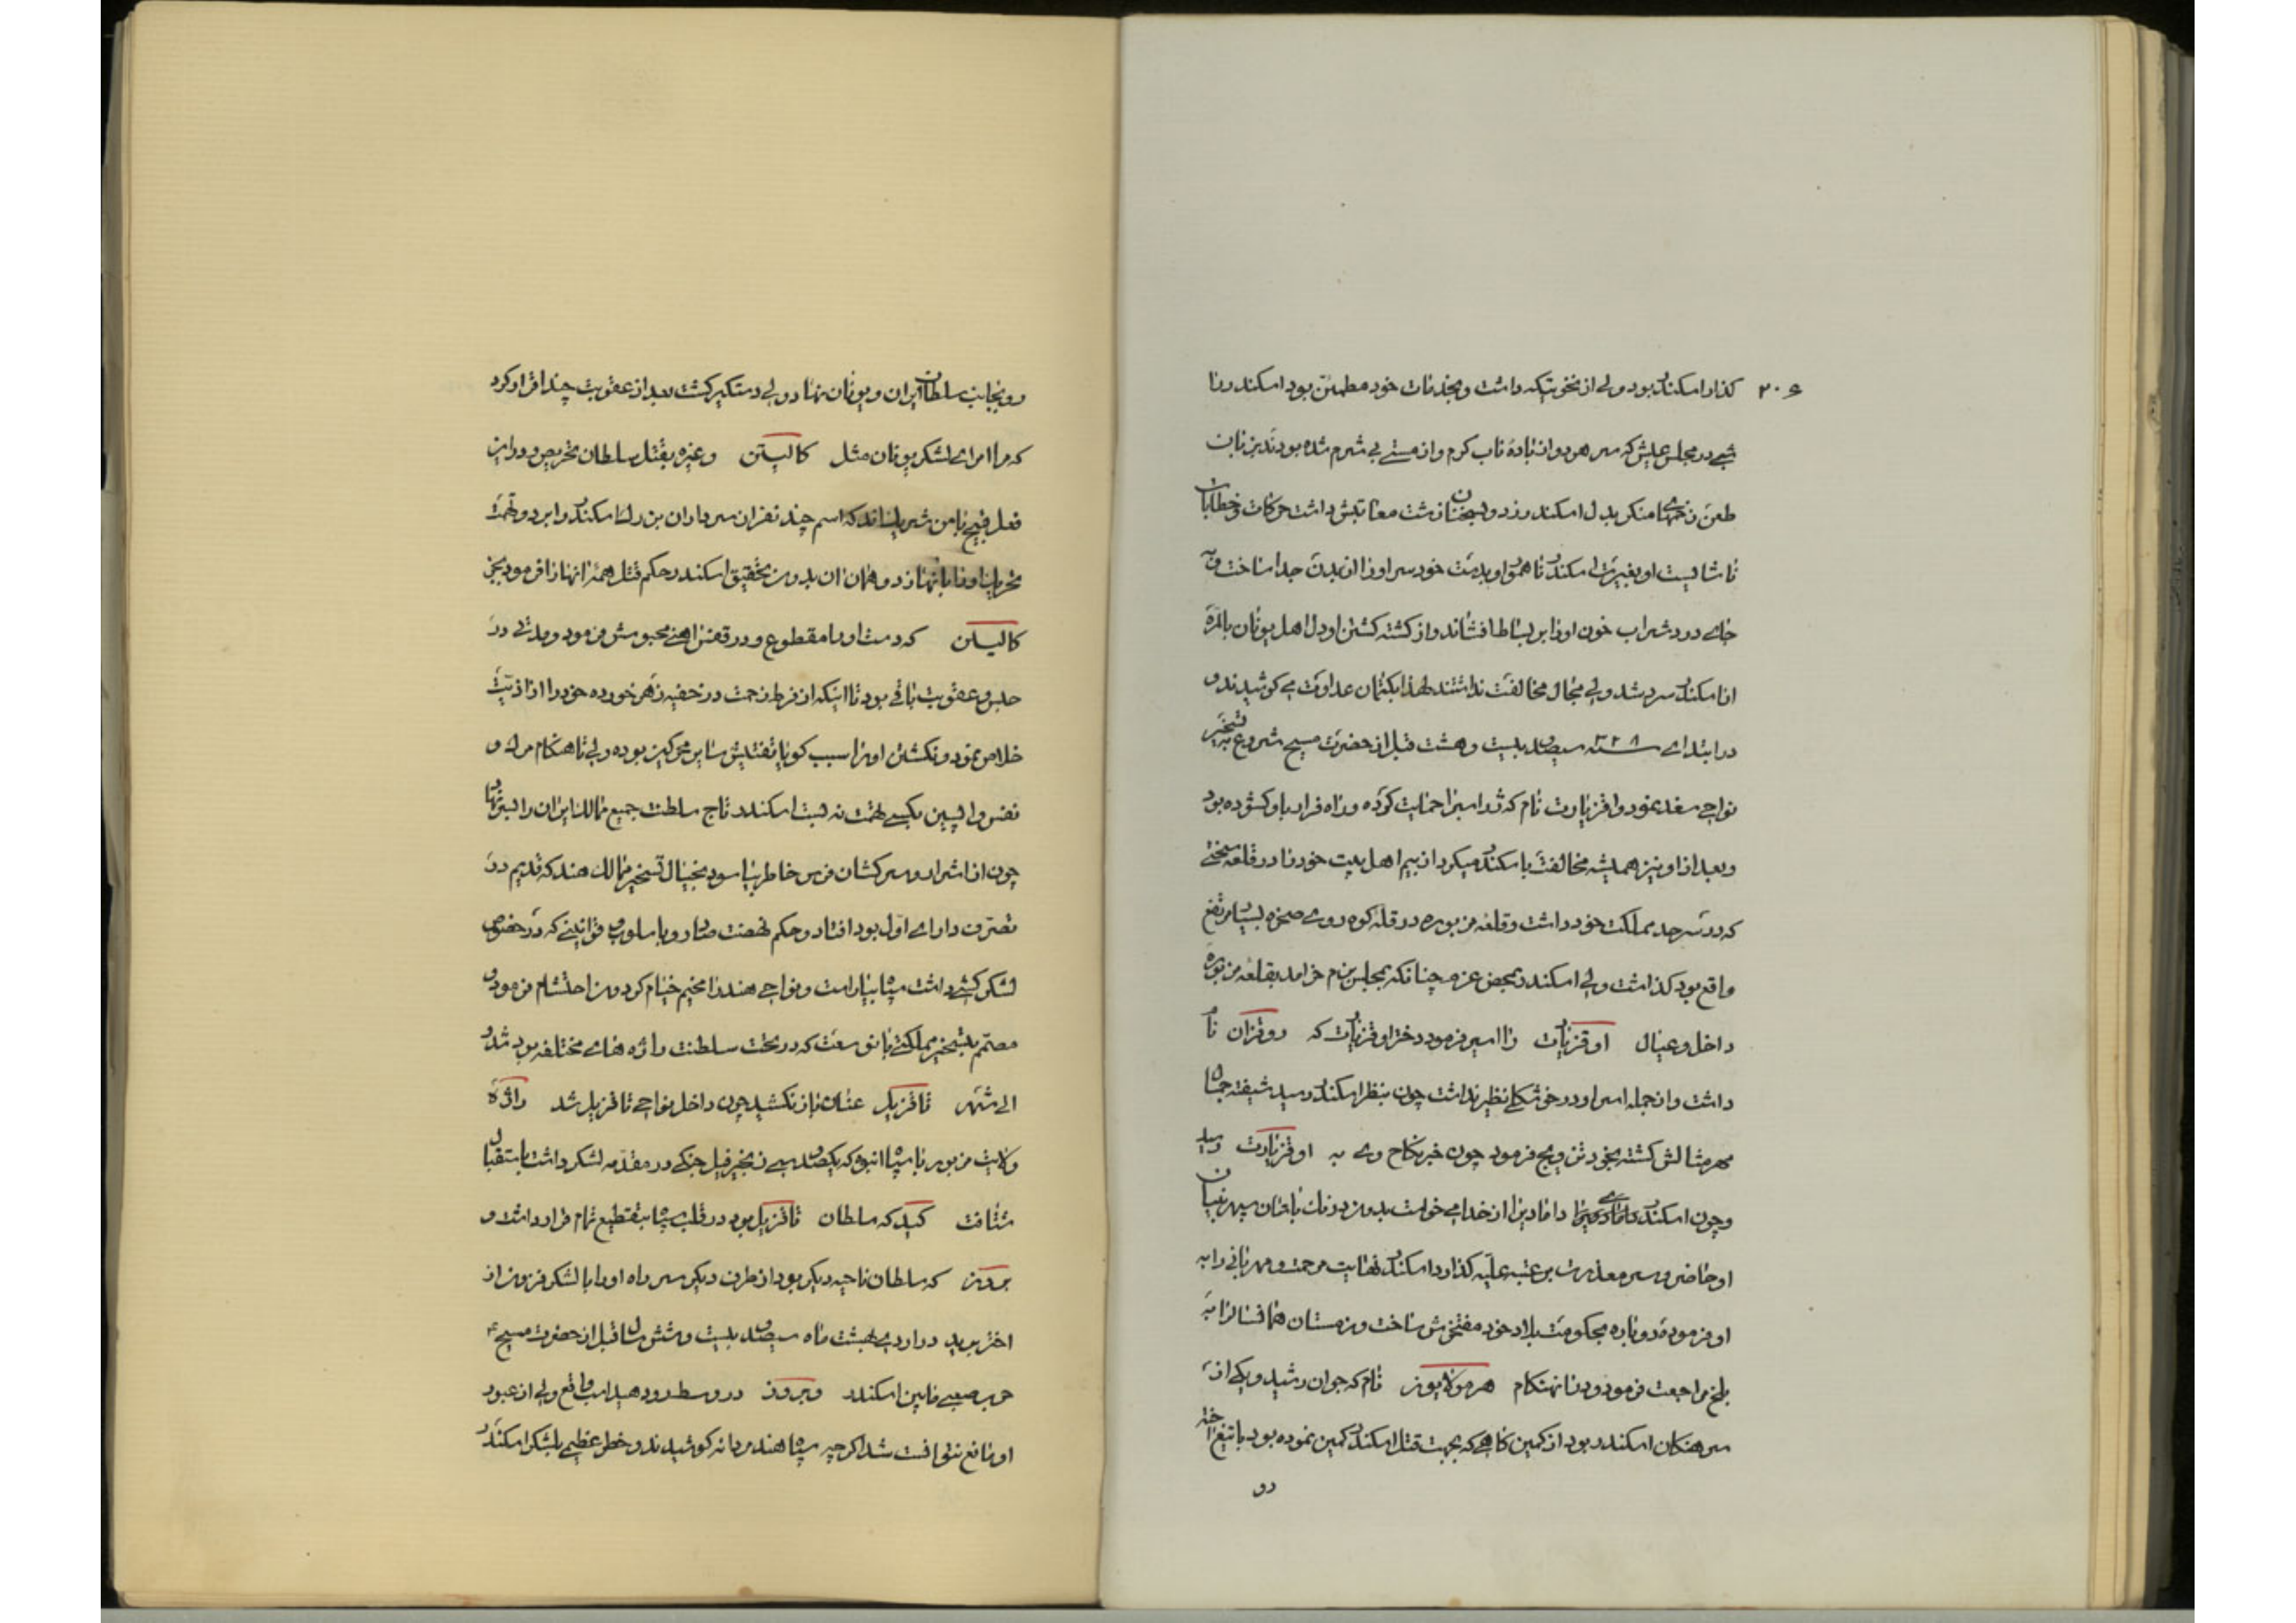 ۲۰۶ کذار اسکندر بود ولی از نخوتیکه داشت و بخدمات خود مطمئن بود اسکندر را
شبی در مجلس عیش که سر هر دو از بادهٔ ناب کرم و از مستی بی شرم شده بودند بزبان
طعن زخمهای منکر بدل اسکندر زد و سخنان زشت معاتبش داشت حرکات و خطابات
ناشایست او بغیرت اسکندر ناهموار و بدست خود سر او را از بدن جدا ساخت و به
جای درد شراب خون او را بر بساط افشاند و از کشته کشتن او دل اهل یونان بالمره
از اسکندر سرد شد ولی مجال مخالفت نداشتند لهذا بکتمان عداوت می کوشیدند و
در ابتدای سنه ۳۲۸ سیصد و بیست و هشت قبل از حضرت مسیح شروع به تسخیر
نواحی سغد نمود و اقزیارت نام که در اسیرا حمایت کرده و راه فرار باو کشوده بود
و بعد از او نیز همیشه مخالفت باسکندر میکرد از بیم اهل بیت خود را در قلعهٔ سختی
که در سرحد مملکت خود داشت و قلعه مزبوره در قلهٔ کوه روی صخره بسیار مرتفع
واقع بود کذاشت ولی اسکندر بمحض عزم چنانکه بمجلس بزم خرامد بقلعهٔ مزبوره
داخل و عیال اوقزیارت را اسیر فرمود دختر اوقزیارت که روقزان نام
داشت و از جمله اسرا و در خوشکلی نظیر نداشت چون بنظر اسکندر رسید شیفته جمال
مهر مثالش کشته بخود تزویج فرمود چون خبر نکاح وی به اوقزیارت رسید
و چون اسکندر دامادی را از خدا می خواست بدون درنك باستان سپهر بنیان
او حاضر و سر معذرت بر عتبه علیه کذارد اسکندر نهایت مرحمت و مهربانی را به
او فرموده دوباره بحکومت بلاد خود مفتخرش ساخت و زمستان همانسال را به
بلخ مراجعت فرمود و در انهنکام هرمولایوز نام که جوان رشید و یکی از
سرهنکان اسکندر بود از کمین کاهی که بجهت قتل اسکندر کمین نموده بود با تیغ اخته
دو
رو بجانب سلطان ایران و یونان نهاد ولی دستکیر کشت بعد از عقوبت چند اقرار کرد
که مرا امرای لشکر یونان مثل کالیستن و غیره بقتل سلطان تحریص و در این
فعل قبیح با من شریك‌اند که اسم چند نفر از سرداران بزرك اسکندر را برد و تهمت
تحریك او را بانها زد و همان ان بدون تحقیق اسکندر حکم قتل همهٔ انها را فرمود بجز
کالیستن که دست او را مقطوع و در قفس اهنی محبوسش فرمود و مدتی در
حبس و عقوبت باقی بود تا اینکه از فرط زحمت در خفیه زهر خورده خود را از اذیت
خلاص نمود و نکشتن او را سبب کویا تفتیش سایر محرکین بوده ولی تا هنکام مرك و
نفس واپسین بکسی تهمت نه بست اسکندر تاج سلطنت جمیع ممالك ایران را بسر نهاد
چون از اشرار و سرکشان فرس خاطر بیاسود بخیال تسخیر ممالك هند که قدیم در
تصرف دارای اول بود افتاد و حکم نهضت صادر و باسلوب و قوانینی که در خصوص
لشکر کشی داشت سپاه بیاراست و نواحی هند را مخیم خیام کردون احتشام فرمود و
مصمم بتسخیر مملکتی با وسعت که در تحت سلطنت راژه های مختلفه بود شد و
الی شهر تاقزیل عنان باز نکشید چون داخل نواحی تاقزیل شد راژه
ولایت مزبور با سپاه انبوه که یکصد و سی زنجیر فیل جنکی در مقدمه لشکر داشت باستقبال
شتافت کبید که سلطان تاقزیل بود در قلب سپاه بتقطیع تمام قرار داشت و
بروز که سلطان ناحیه دیکر بود از طرف دیکر سر راه او را با لشکر فزون از
اختر برید در اردی بهشت ماه سیصد و بیست و شش سال قبل از حضرت مسیح ع
حرب صعبی مابین اسکندر و بروز در وسط رود هیداسب واقع ولی از عبور
او مانع نتوانست شد اکرچه سپاه هند مردانه کوشیدند و خطر عظیمی بلشکر اسکندر